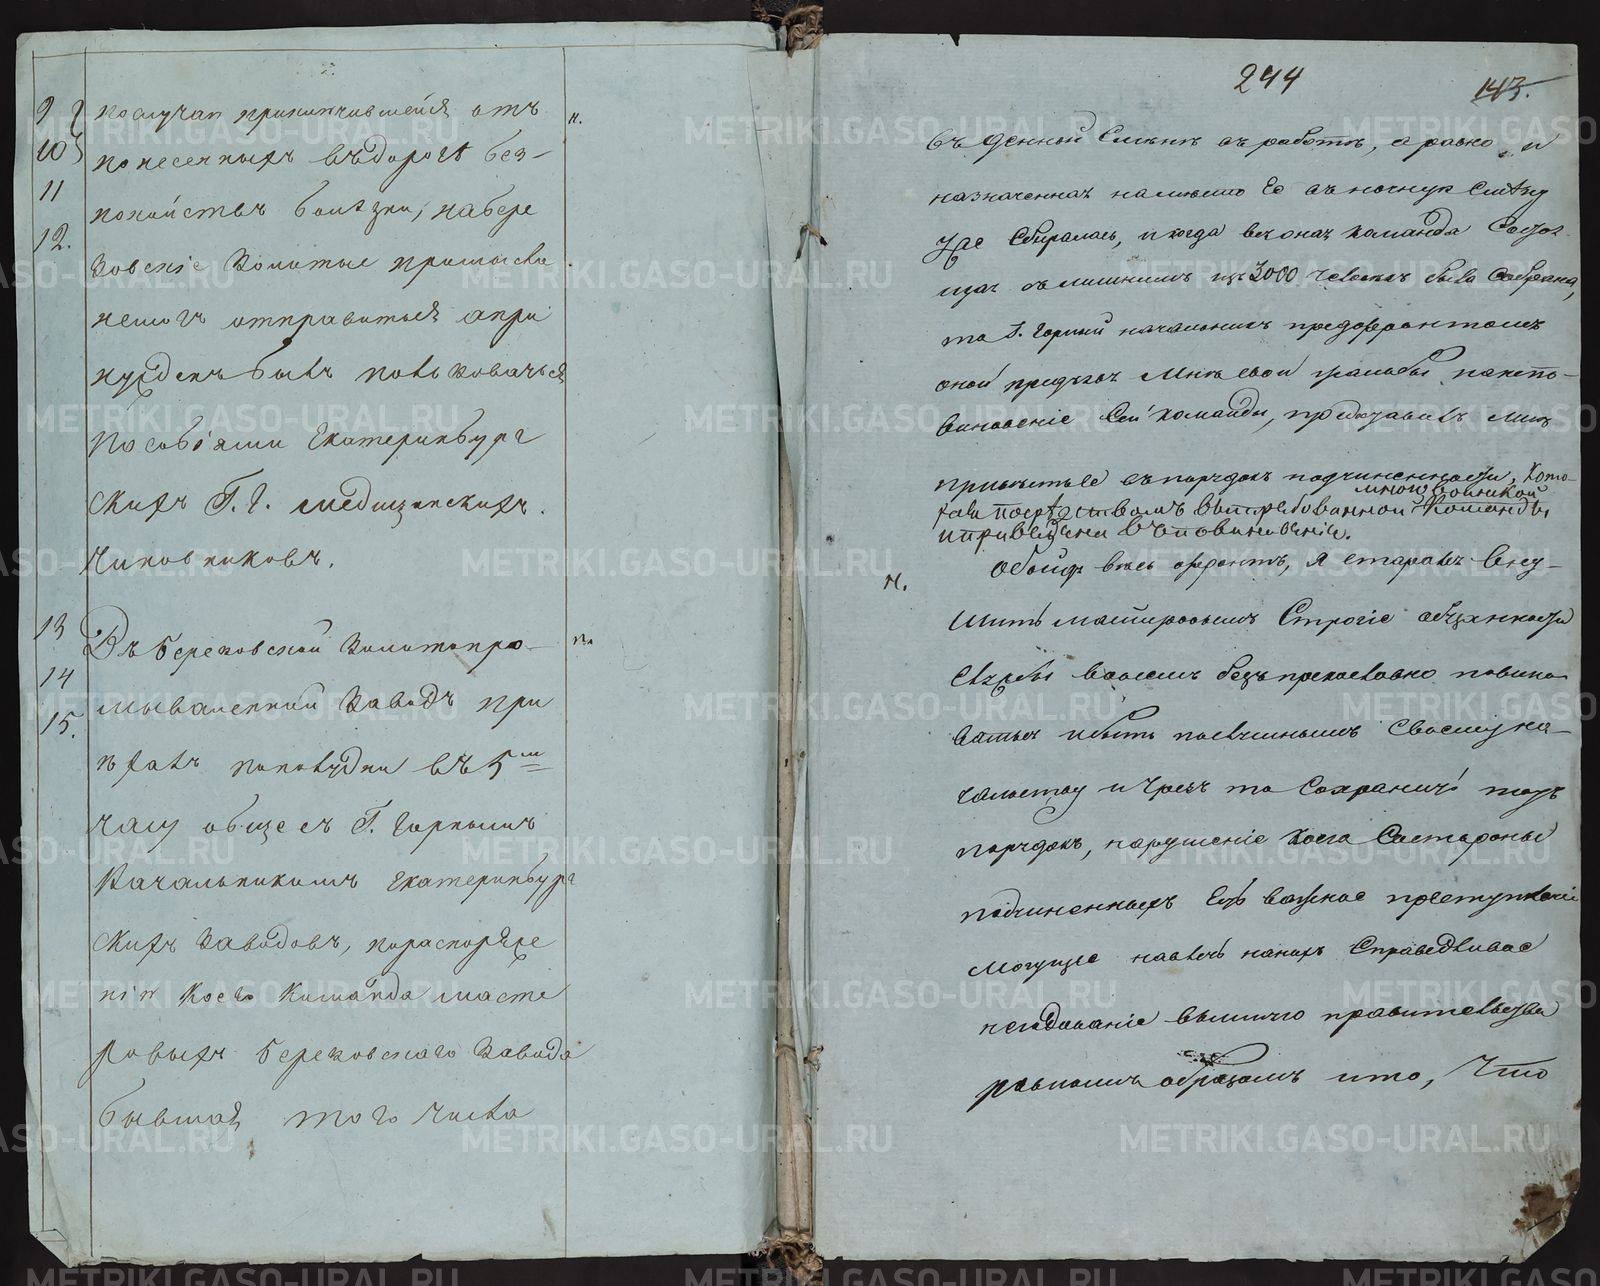 9
10
11
12.
послучаю приключившейся отъ
понесенныхъ въдорогѣ без-
покойствъ болѣзни, наБере
зовскіе Золотые промыслы
немогъ отправиться апри
нужденъ быть пользоваться
пособіями Екатеринбург
скихъ Г.г. медицинскихъ
Чиновниковъ.
н.
13
14
15.
Въ Березовской Золотопро-
мываленный Заводъ при
ѣхалъ пополудни въ 5ть
часу обще съ Г. Горнымъ
Начальникомъ Екатеринбург
скихъ Заводовъ, пораспоряже
нію Коего Команда масте
ровыхъ Березовскаго Завода
бывшая того числа
244
143.
въ денной Смѣнѣ въ работѣ, а равно и
назначенная намѣсто Ее въ ночную Смѣну
уже Собиралась, и когда вся оная команда Состоя-
щая слишкомъ изъ 3000 человѣкъ была Собрана,
то Г. Горный начальникъ предъ фронтомъ
оной предъ Мнѣ свои жалобы на непо-
виновеніе Сей команды, представилъ мнѣ
привесть Ее въ порядокъ подчиненности, кото-
мною воинской
рая посредствомъ вытребованной Команды
и приведена въ повиновеніе.
н.
Обойдя весь фронтъ, я старался вну-
шить мастеровымъ Строгіе обязанности
службы во всемъ безпрекословно повино-
ваться и быть послушнымъ Своему на-
чальству и чрезъ то Сохранить тотъ
порядокъ, нарушеніе коего Состороны
подчиненныхъ Есть важное преступленіе
могущее навлечь на нихъ Справедливое
негодованіе вышняго правительства
равнымъ образомъ и то, Что
METRIKI.GASO-URAL.RU